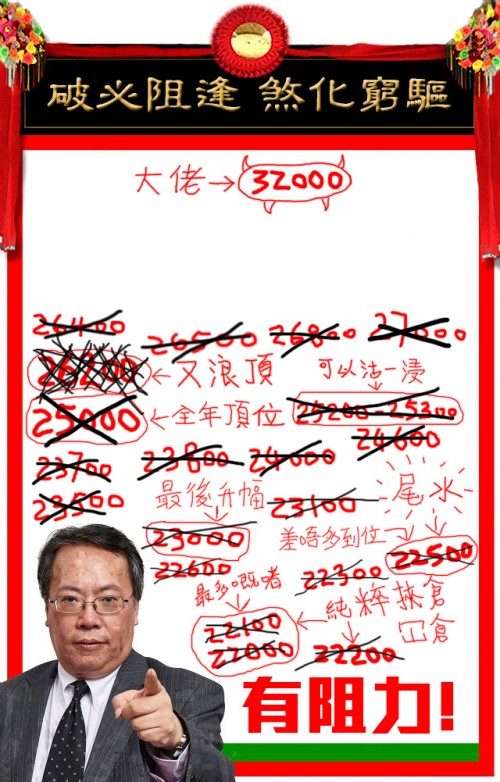 驅窮化煞 逢阻必破
大佬→32000
26400 26500 26800 27000
←又浪頂 可以沽一浸
25000 ←全年頂位 25200-25300
24600
23700 23800 24000
23500 最後升幅 23100 尾水
23000 差唔多到位→ 22500
22600 最多嘅啫 22300 純粹挾倉
冚倉
22100
22000 22200
有阻力!